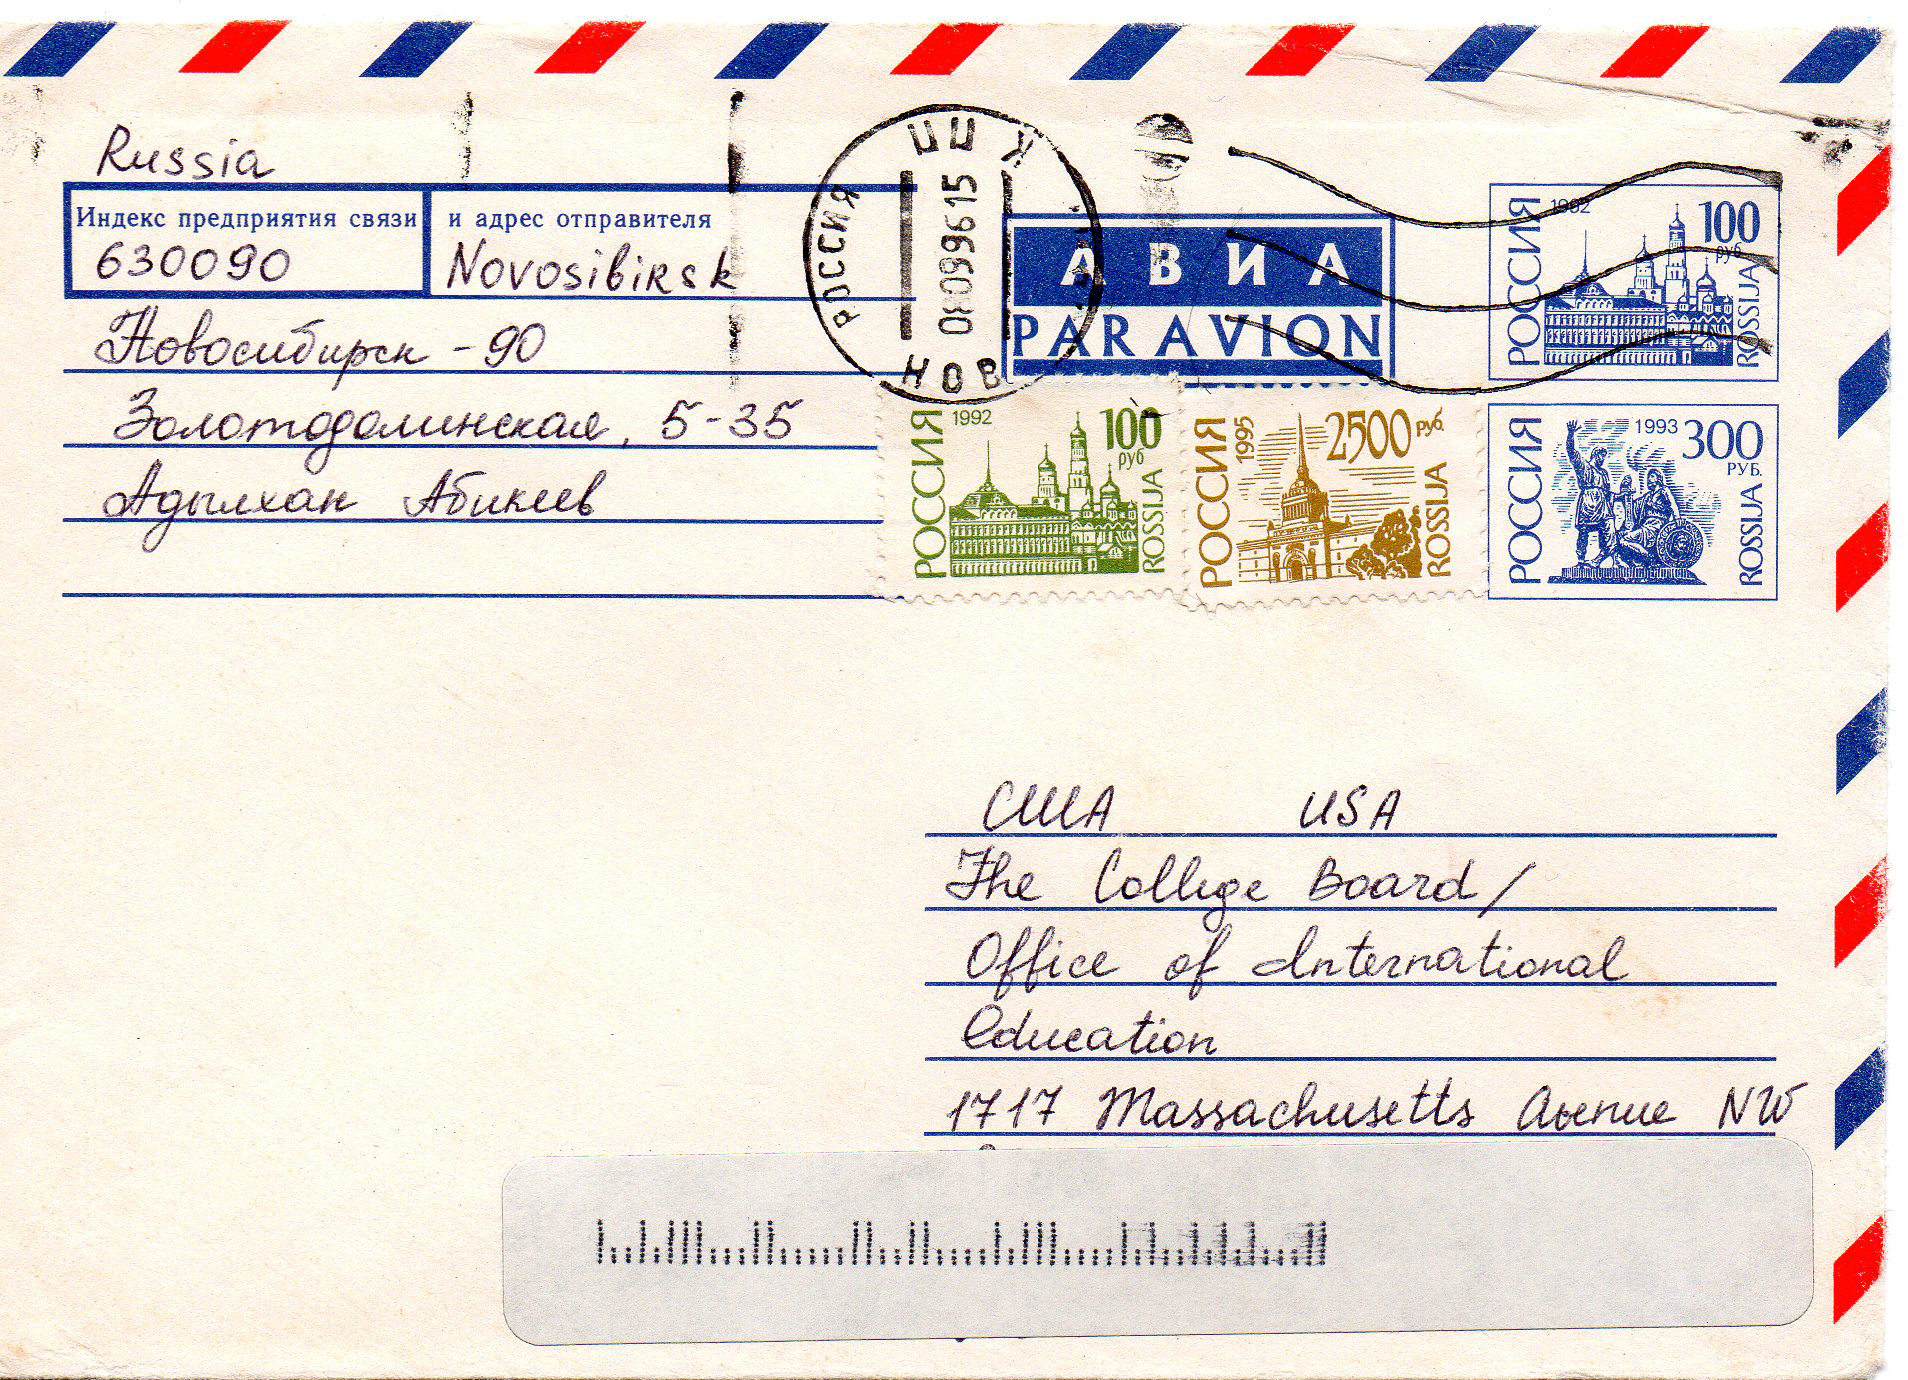 Russia
Индекс предприятия связи и адрес отправителя
630090 Novosibirsk
Новосибирск - 90
Золотодолинская, 5-35
Адылхан Абикеев
РОССИЯ
ЦПП К
08099615
НОВ
АВИА
PAR AVION
РОССИЯ 1992 100 руб ROSSIJA
РОССИЯ 1992 100 руб ROSSIJA
РОССИЯ 1995 2500 руб. ROSSIJA
РОССИЯ 1993 300 РУБ. ROSSIJA
США USA
The College Board/
Office of International
Education
1717 Massachusetts Avenue NW